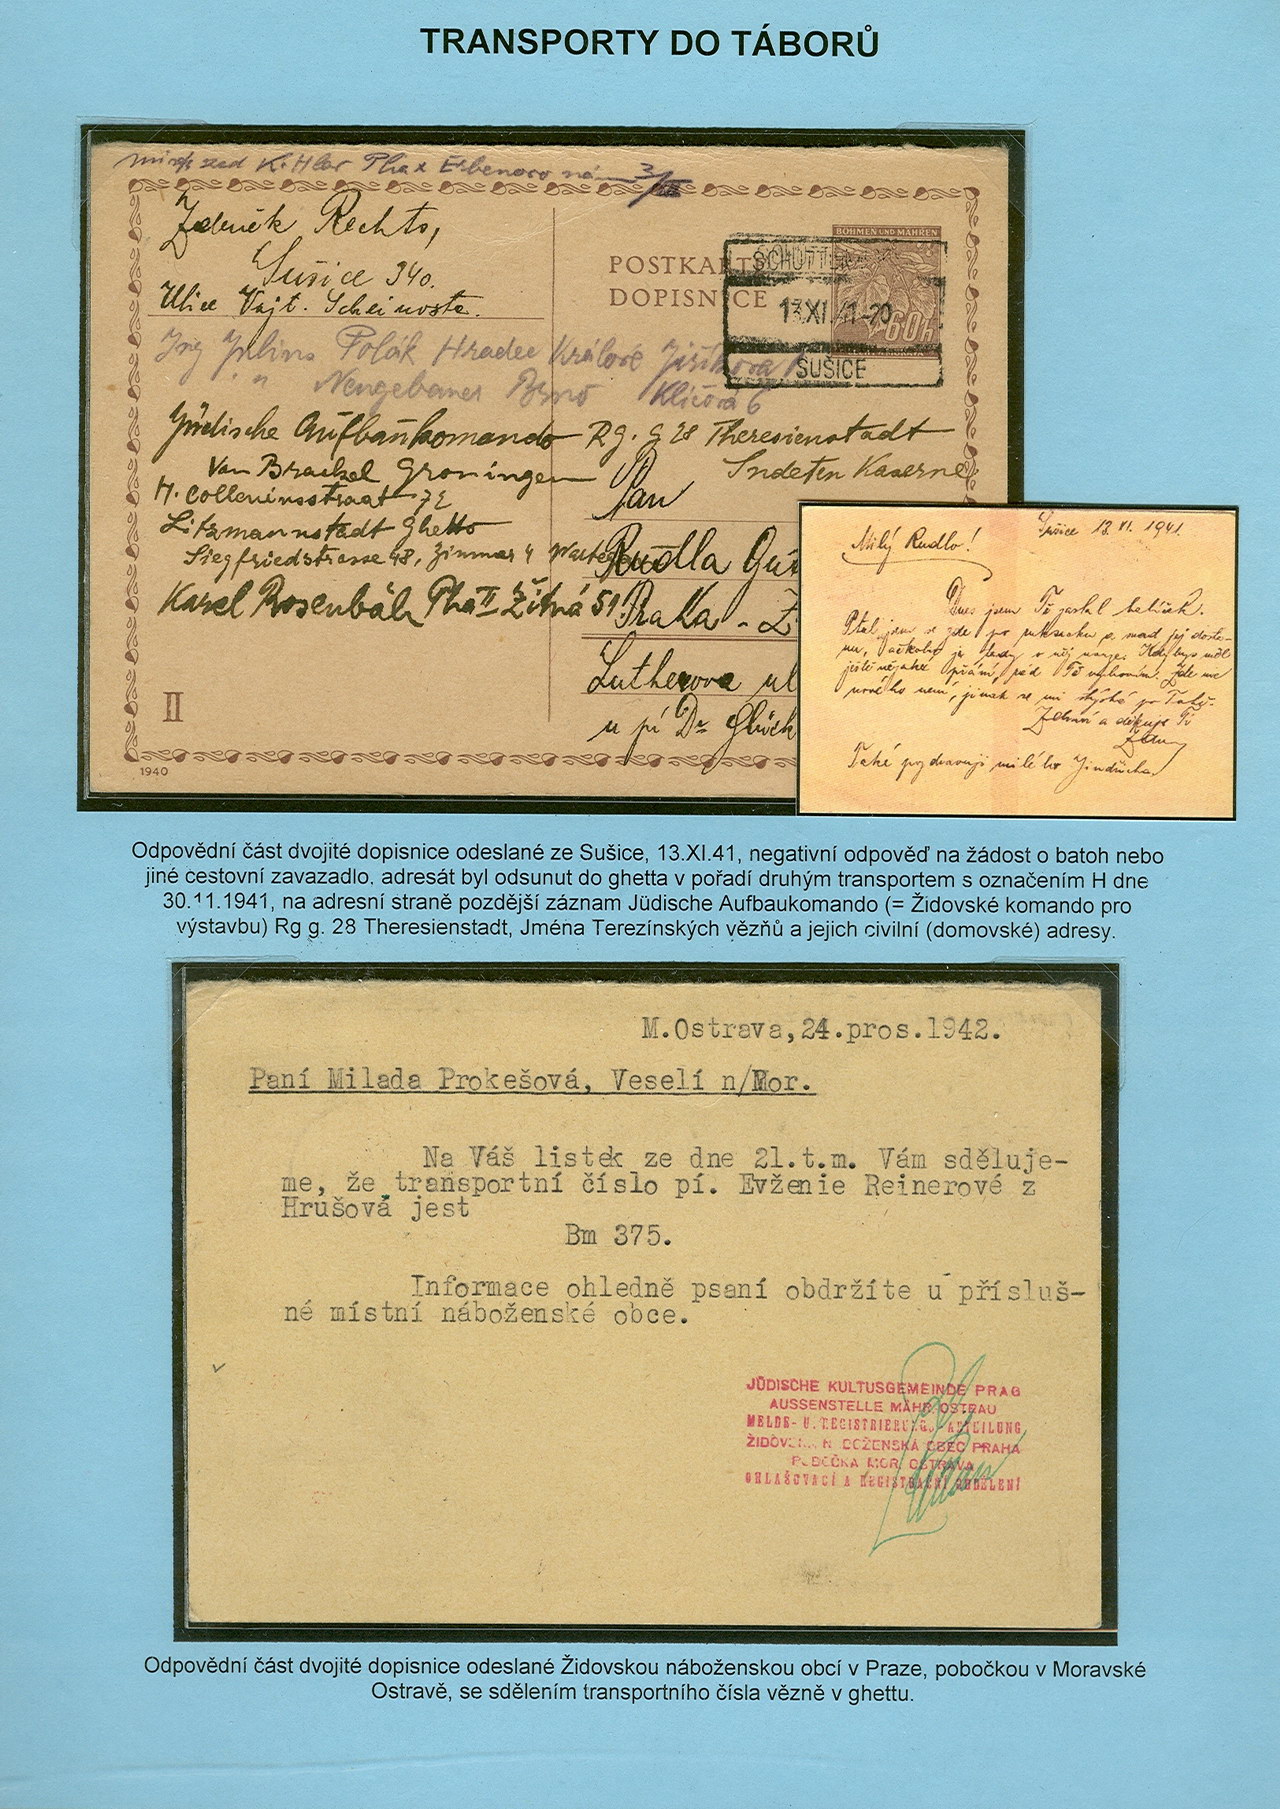 TRANSPORTY DO TÁBORŮ
Zdeněk Rechts,
Sušice 340.
Ulice Vojt. Scheinosta.
POSTKARTE
DOPISNICE
BÖHMEN UND MÄHREN
60h
13.XI.41-20
SUŠICE
Ing Julius Polák Hradec Králové
" Neugebauer Brno Klíčová 6
Jüdische Aufbaukomando Rg. g 28 Theresienstadt
Sudeten Kaserne
Van Brackel Groningen
H. Colleniusstraat 72
Litzmannstadt Ghetto
Siegfriedstrasse 48, Zimmer 4
Karel Rosenbáh Pha II Žitná 51
Pan
Rudla
Praha -
Lutherova ul
u pí Dr
II
1940
Sušice 13.XI.1941.
Milý Rudlo!
Dnes jsem Ti zaslal balíček.
Ptal jsem se zde po ruksacku a
Zdraví a děkuje Ti
Také pozdravuji milého Jindřicha
Odpovědní část dvojité dopisnice odeslané ze Sušice, 13.XI.41, negativní odpověď na žádost o batoh nebo
jiné cestovní zavazadlo. adresát byl odsunut do ghetta v pořadí druhým transportem s označením H dne
30.11.1941, na adresní straně pozdější záznam Jüdische Aufbaukomando (= Židovské komando pro
výstavbu) Rg g. 28 Theresienstadt, Jména Terezínských vězňů a jejich civilní (domovské) adresy.
M.Ostrava,24.pros.1942.
Paní Milada Prokešová, Veselí n/Mor.
Na Váš lístek ze dne 21.t.m. Vám sděluje-
me, že transportní číslo pí. Evženie Reinerové z
Hrušová jest
Bm 375.
Informace ohledně psaní obdržíte u přísluš-
né místní náboženské obce.
JÜDISCHE KULTUSGEMEINDE PRAG
AUSSENSTELLE MÄHR. OSTRAU
MELDE- U. REGISTRIERUNGS ABTEILUNG
ŽIDOVSKÁ NÁBOŽENSKÁ OBEC PRAHA
POBOČKA MOR. OSTRAVA
OHLAŠOVACÍ A REGISTRAČNÍ ODDĚLENÍ
Odpovědní část dvojité dopisnice odeslané Židovskou náboženskou obcí v Praze, pobočkou v Moravské
Ostravě, se sdělením transportního čísla vězně v ghettu.